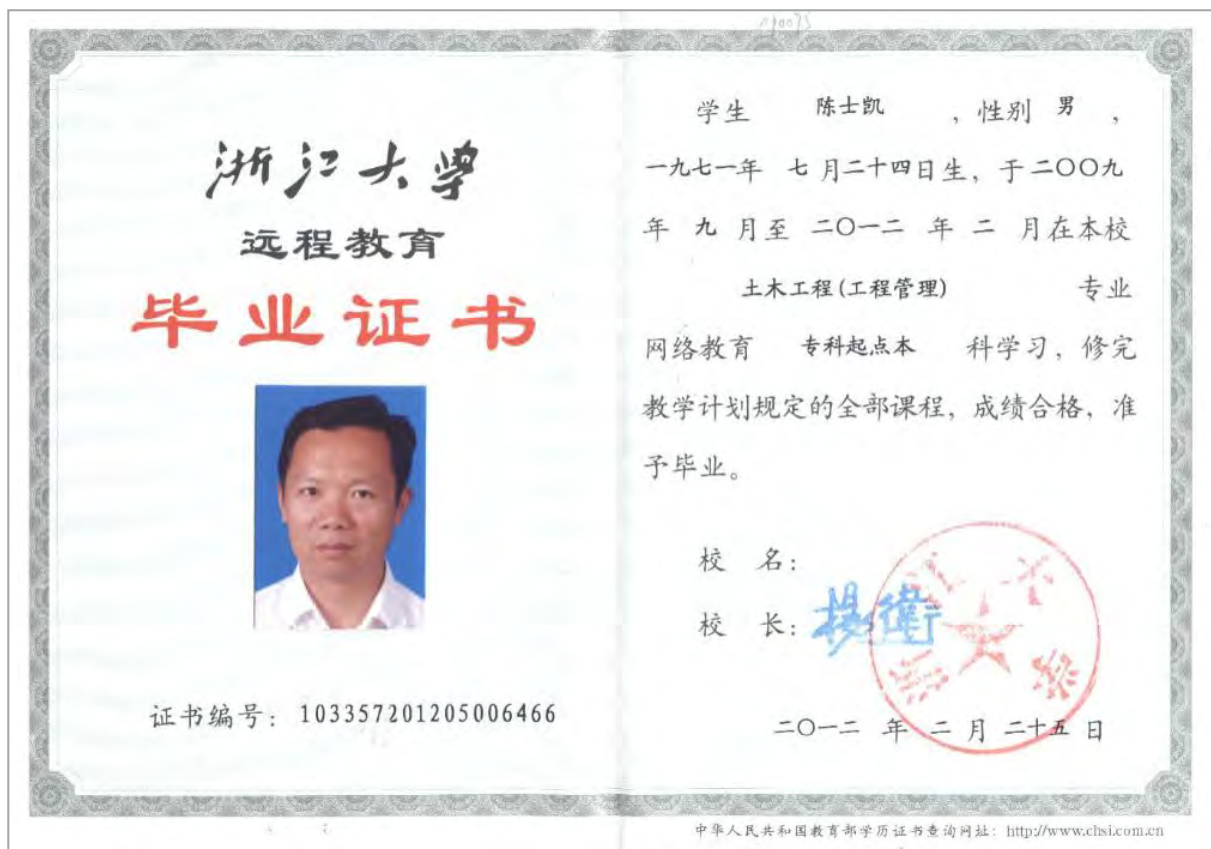 浙江大学
远程教育
毕业证书
证书编号：103357201205006466
学生 陈士凯 ，性别 男 ，
一九七一年 七 月二十四日生，于二〇〇九
年 九 月至 二〇一二 年 二 月在本校
土木工程(工程管理) 专业
网络教育 专科起点本 科学习，修完
教学计划规定的全部课程，成绩合格，准
予毕业。
校 名：
校 长：杨卫
浙江大学
二〇一二 年 二 月 二十五 日
中华人民共和国教育部学历证书查询网址：http://www.chsi.com.cn